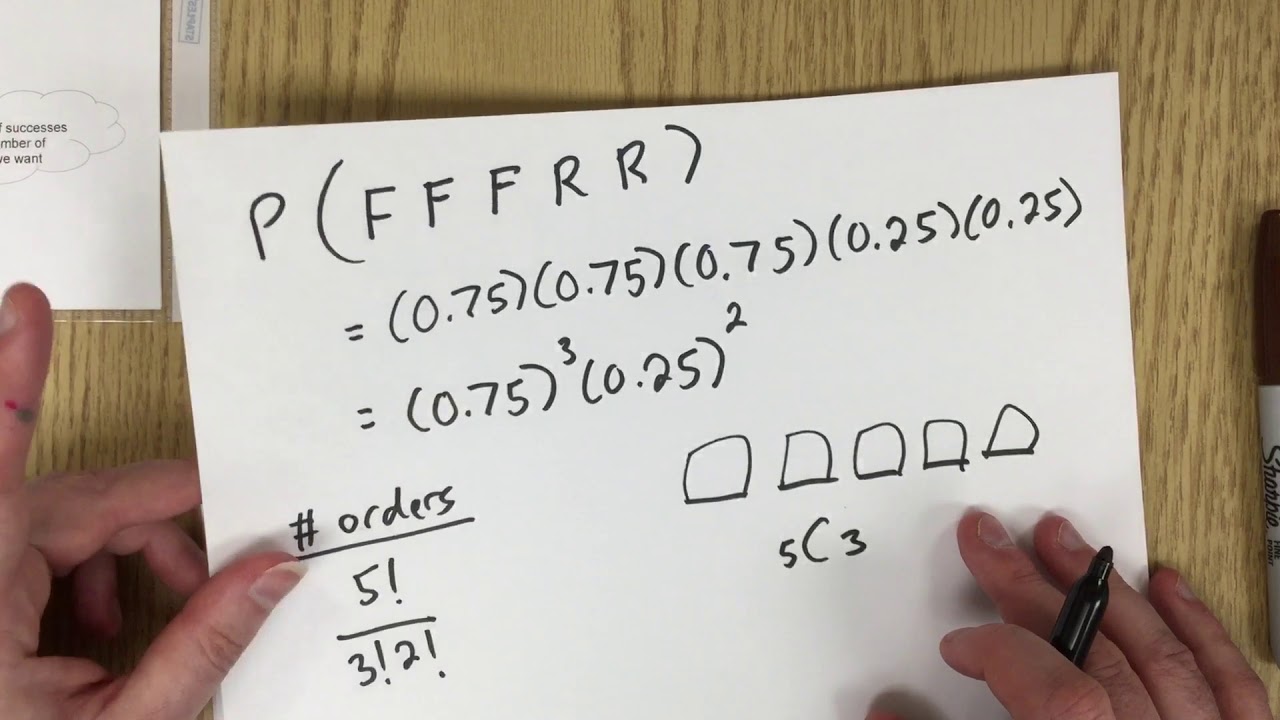 f successes
mber of
we want
P(FFFRR)
= (0.75)(0.75)(0.75)(0.25)(0.25)
= (0.75)³(0.25)²
# orders
5!
3!2!
5C3
Sharpie